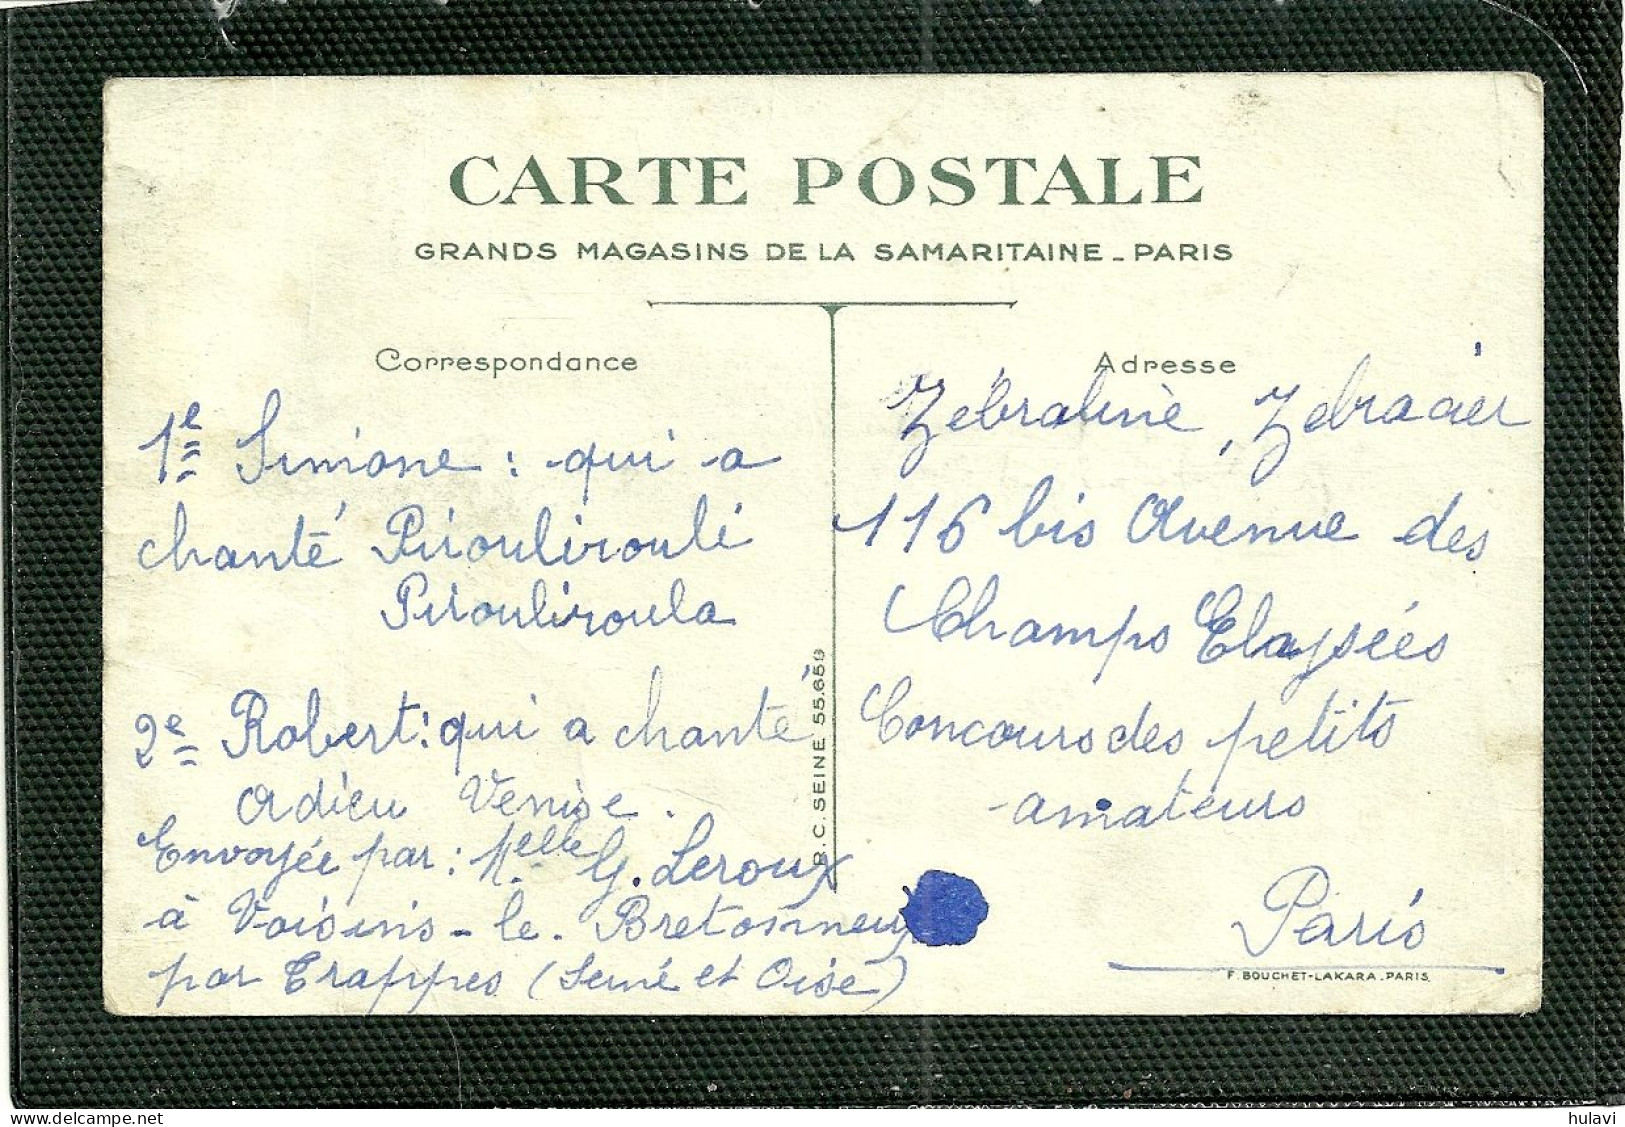 CARTE POSTALE
GRANDS MAGASINS DE LA SAMARITAINE - PARIS
Correspondance
1e Simone : qui a
chanté Pirouliroulí
Pirouliroula
2e Robert : qui a chanté
adieu Venise.
Envoyée par : Melle G. Leroux
à Voisins-le-Bretonneux
par Trappes (Seine et Oise)
R. C. SEINE 55.659
Adresse
Zébraline, Zebracier
116 bis Avenue des
Champs Elaysées
Concours des petits
amateurs
Paris
F. BOUCHET-LAKARA. PARIS.
www.delcampe.net
hulavi